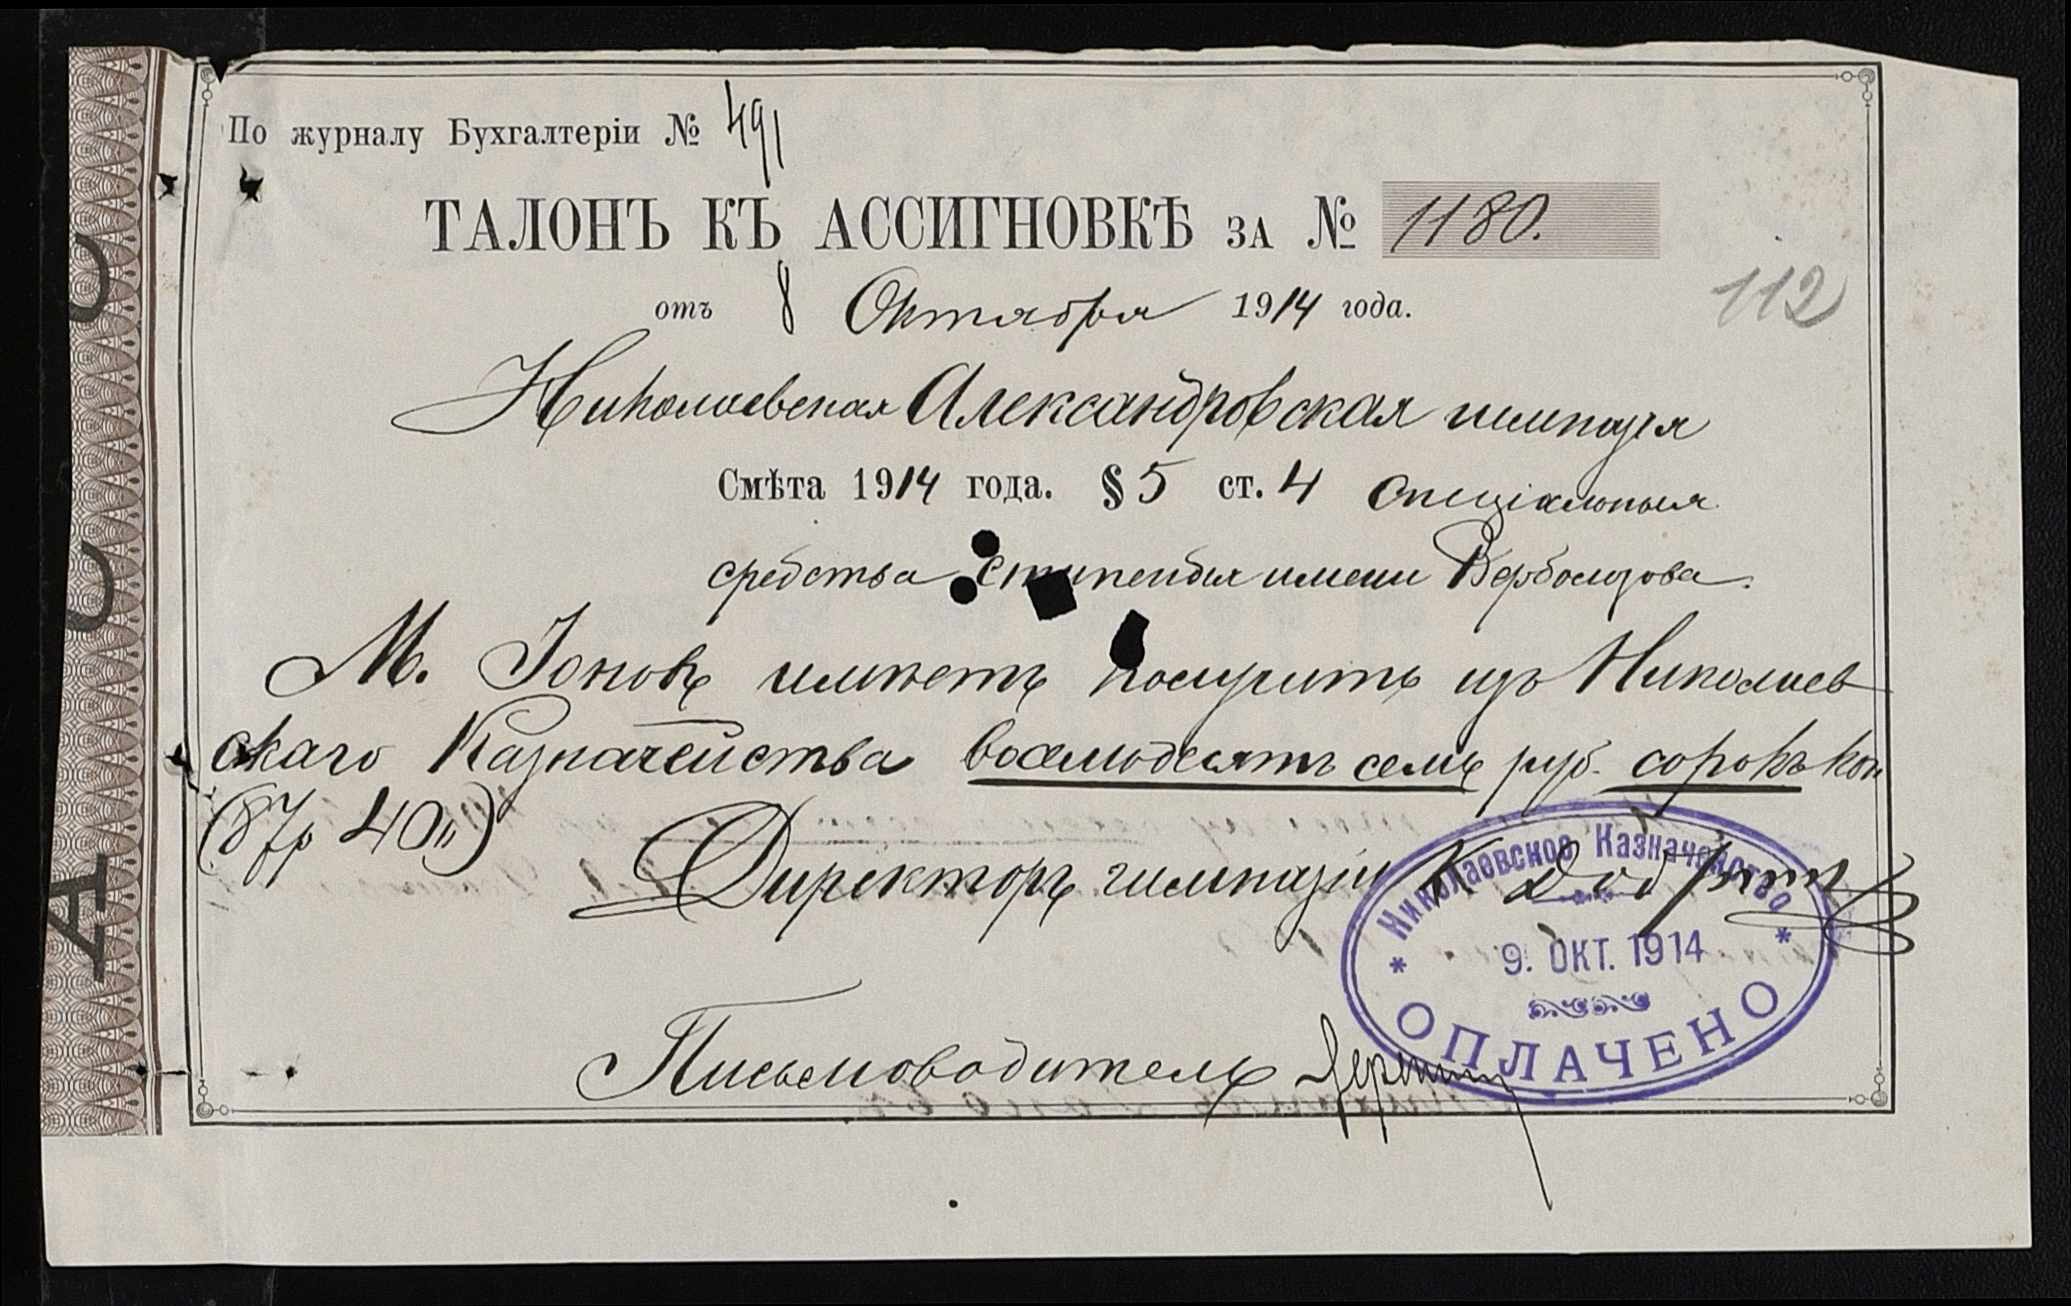 По журналу Бухгалтеріи № 491
ТАЛОНЪ КЪ АССИГНОВКѢ ЗА № 1180.
отъ 8 Октября 1914 года.
112
Николаевская Александровская гимназія
Смѣта 1914 года. § 5 ст. 4 Спеціальныя
средства Стипендія имени
М. Іоновъ имѣетъ получить изъ Николаев
скаго Казначейства восемьдесятъ семь руб. сорокъ коп
(87р 40к)
Директоръ гимназіи К
Николаевское Казначейство
9. ОКТ. 1914
ОПЛАЧЕНО
Письмоводитель
А С С